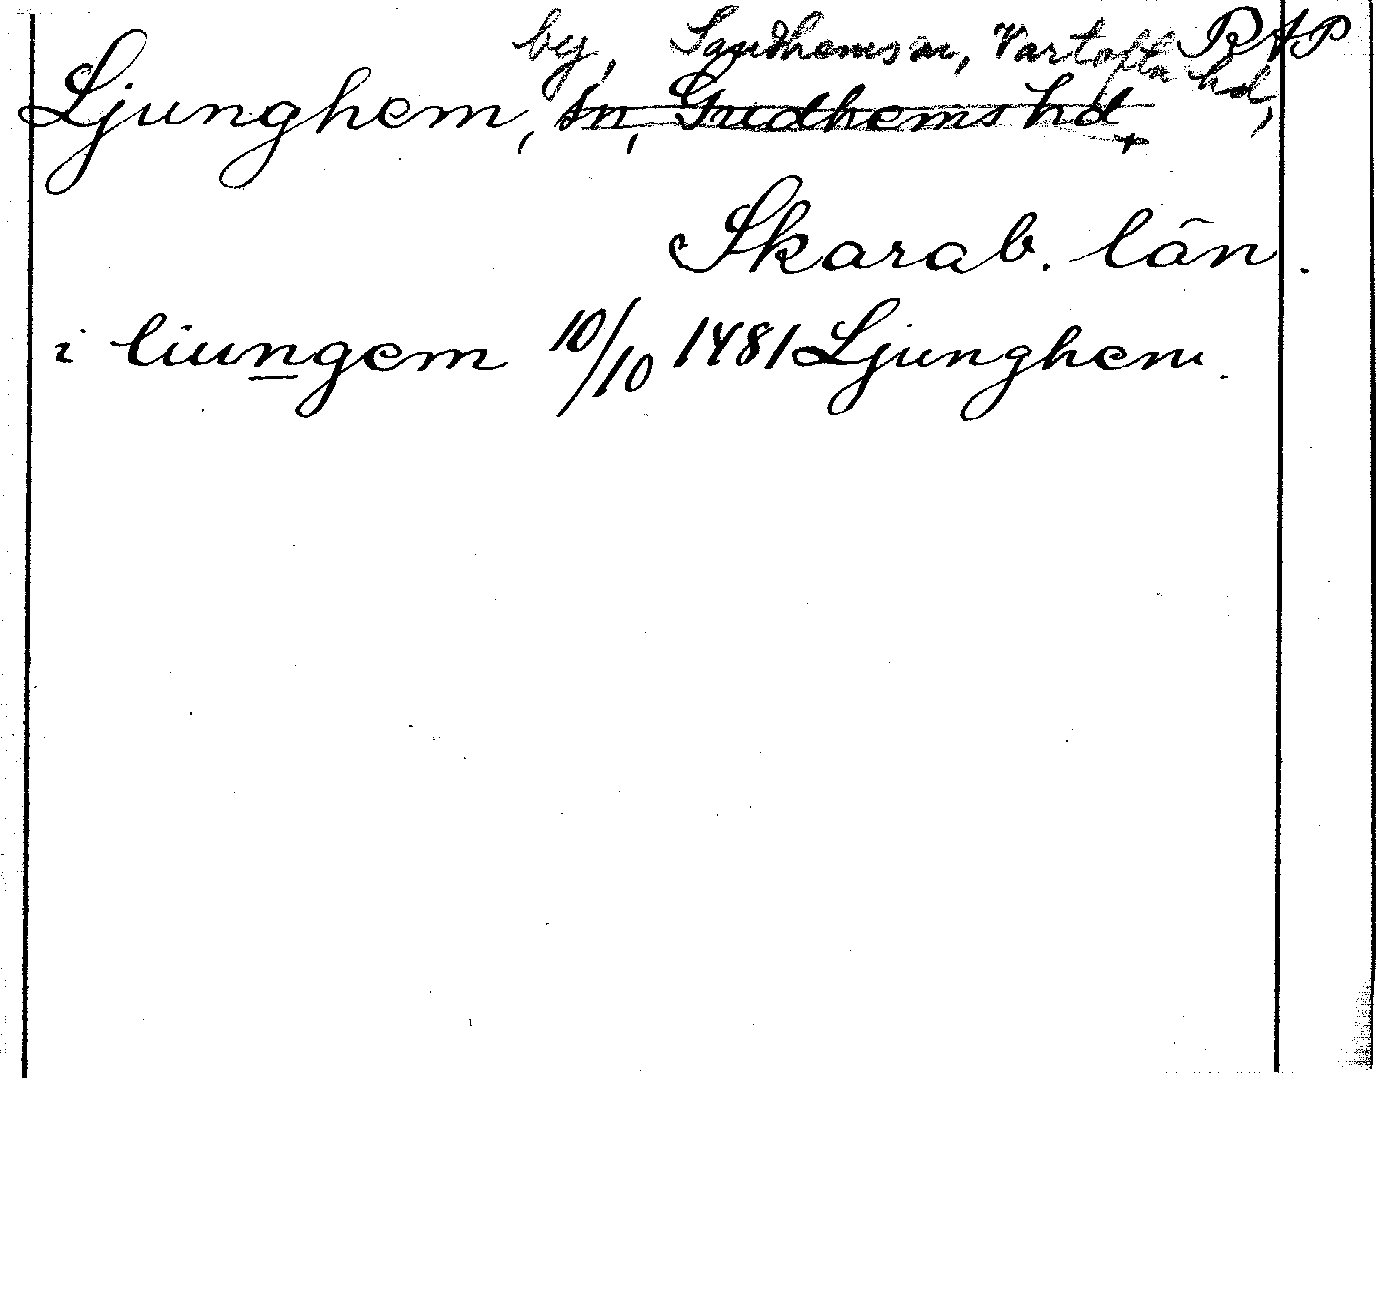 by, Sandhems sn, Vartofta hd, RAP
Ljunghem, Sn, Gudhems hd
Skarab. län.
i liungem 10/10 1481 Ljunghem.